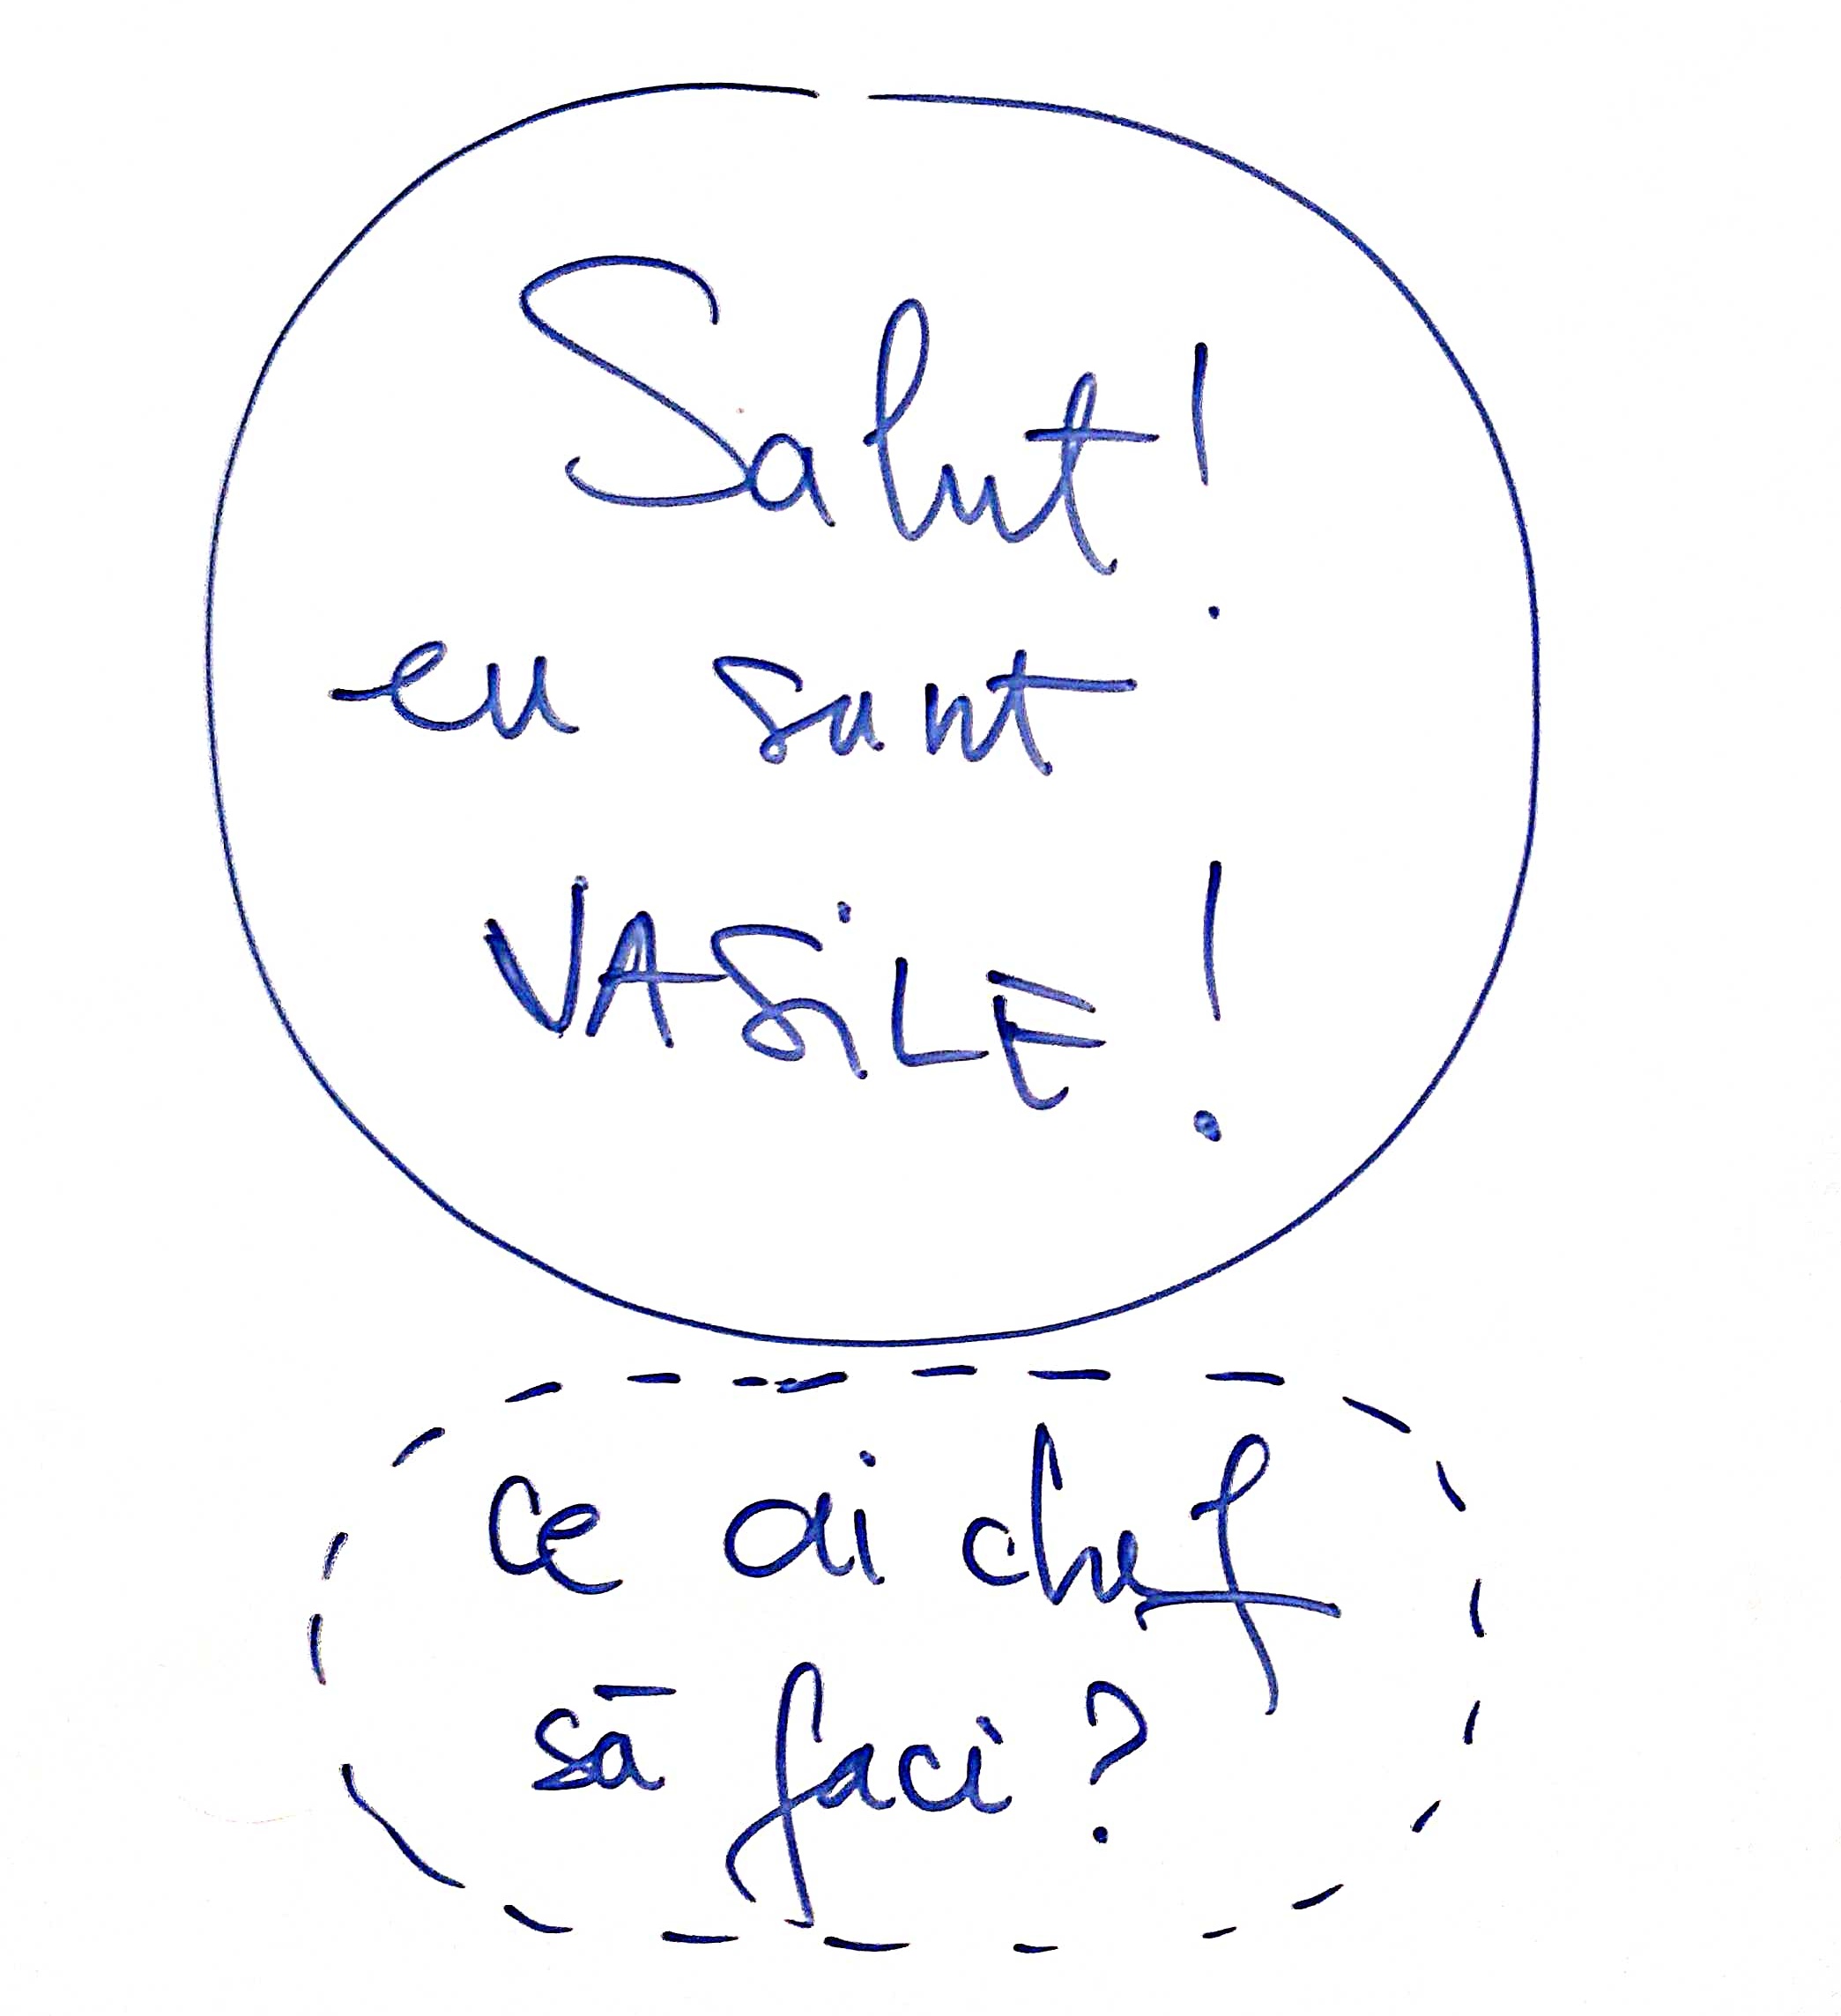 Salut!
eu sunt
VASiLE!
ce ai chef
să faci?